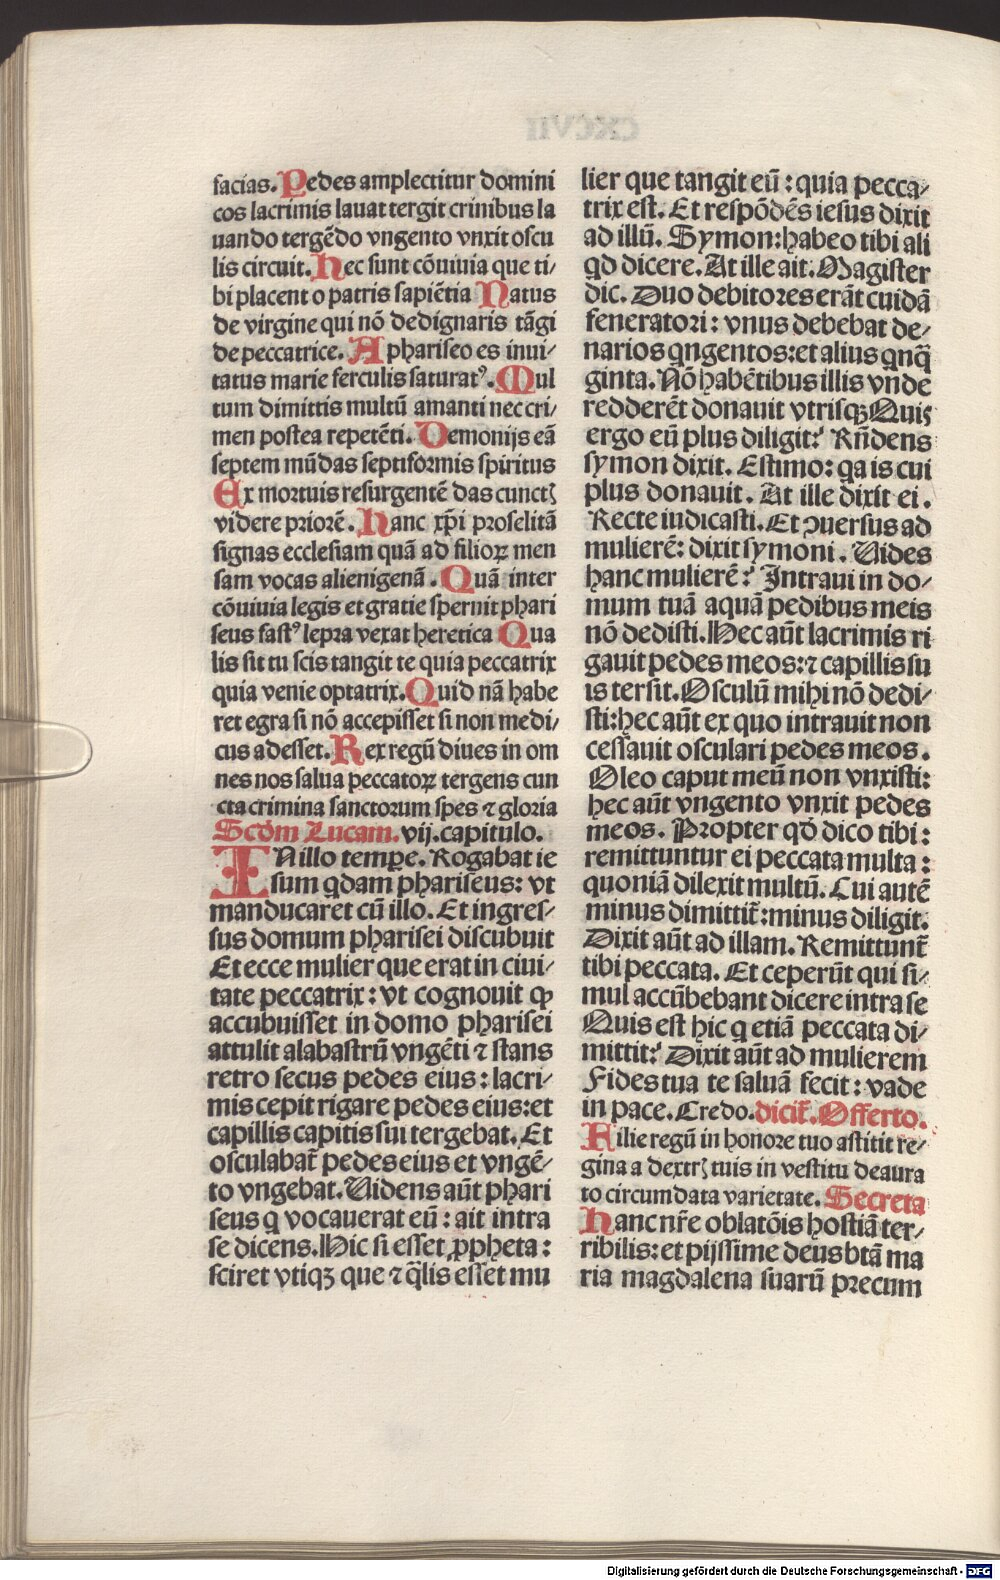 facias. Pedes amplectitur domini
cos lacrimis lauat tergit crinibus la
uando tergēdo vngento vnxit oscu
lis circuit. Hec sunt cōuiuia que ti⸗
bi placent o patris sapiētia Natus
de virgine qui nō dedignaris tāgi
de peccatrice. A phariseo es inui⸗
tatus marie ferculis saturatꝰ. Mul
tum dimittis multū amanti nec cri⸗
men postea repetēti. Demonijs eā
septem mūdas septiformis spiritus
Ex mortuis resurgentē das cunctꝭ
videre priorē. Hanc xp̄i proselitā
signas ecclesiam quā ad filioꝝ men
sam vocas alienigenā. Quā inter
cōuiuia legis et gratie spernit phari
seus fastꝰ lepra vexat heretica Qua
lis sit tu scis tangit te quia peccatrix
quia venie optatrix. Quid nā habe
ret egra si nō accepisset si non medi⸗
cus adesset. Rex regū diues in om
nes nos salua peccatoꝝ tergens cun
cta crimina sanctorum spes ⁊ gloria
Scd̄m Lucam. vij. capitulo.
IN illo tempe. Rogabat ie
sum qdam phariseus: vt
manducaret cū illo. Et ingres⸗
sus domum pharisei discubuit
Et ecce mulier que erat in ciui⸗
tate peccatrix: vt cognouit ꝙ
accubuisset in domo pharisei
attulit alabastrū vngēti ⁊ stans
retro secus pedes eius: lacri⸗
mis cepit rigare pedes eius: et
capillis capitis sui tergebat. Et
osculabat̄ pedes eius et vngē⸗
to vngebat. Videns aūt phari
seus q vocauerat eū: ait intra
se dicens. Hic si esset ꝓpheta:
sciret vtiqꝫ que ⁊ q̄lis esset mu
lier que tangit eū: quia pecca⸗
trix est. Et respōdēs iesus dixit
ad illū. Symon: habeo tibi ali
qd dicere. At ille ait. Magister
dic. Duo debitores erāt cuidā
feneratori: vnus debebat de⸗
narios qngentos: et alius qnq̄
ginta. Nō habētibus illis vnde
redderēt donauit vtrisqꝫ Quis
ergo eū plus diligit? Rn̄dens
symon dixit. Estimo: qa is cui
plus donauit. At ille dixit ei.
Recte iudicasti. Et ꝯuersus ad
mulierē: dixit symoni. Vides
hanc mulierē? Intraui in do⸗
mum tuā aquā pedibus meis
nō dedisti. Hec aūt lacrimis ri
gauit pedes meos: ⁊ capillis su
is tersit. Osculū mihi nō dedi⸗
sti: hec aūt ex quo intrauit non
cessauit osculari pedes meos.
Oleo caput meū non vnxisti:
hec aūt vngento vnxit pedes
meos. Propter qd dico tibi:
remittuntur ei peccata multa:
quoniā dilexit multū. Cui autē
minus dimittit̄: minus diligit.
Dixit aūt ad illam. Remittunt̄
tibi peccata. Et ceperūt qui si⸗
mul accūbebant dicere intra se
Quis est hic q etiā peccata di⸗
mittit? Dixit aūt ad mulierem
Fides tua te saluā fecit: vade
in pace. Credo. dicit̄. Offerto.
Filie regū in honore tuo astitit re⸗
gina a dextrꝭ tuis in vestitu deaura
to circumdata varietate. Secreta
Hanc nr̄e oblatōis hostiā ter⸗
ribilis: et pijssime deus btā ma
ria magdalena suarū precum
Digitalisierung gefördert durch die Deutsche Forschungsgemeinschaft - DFG